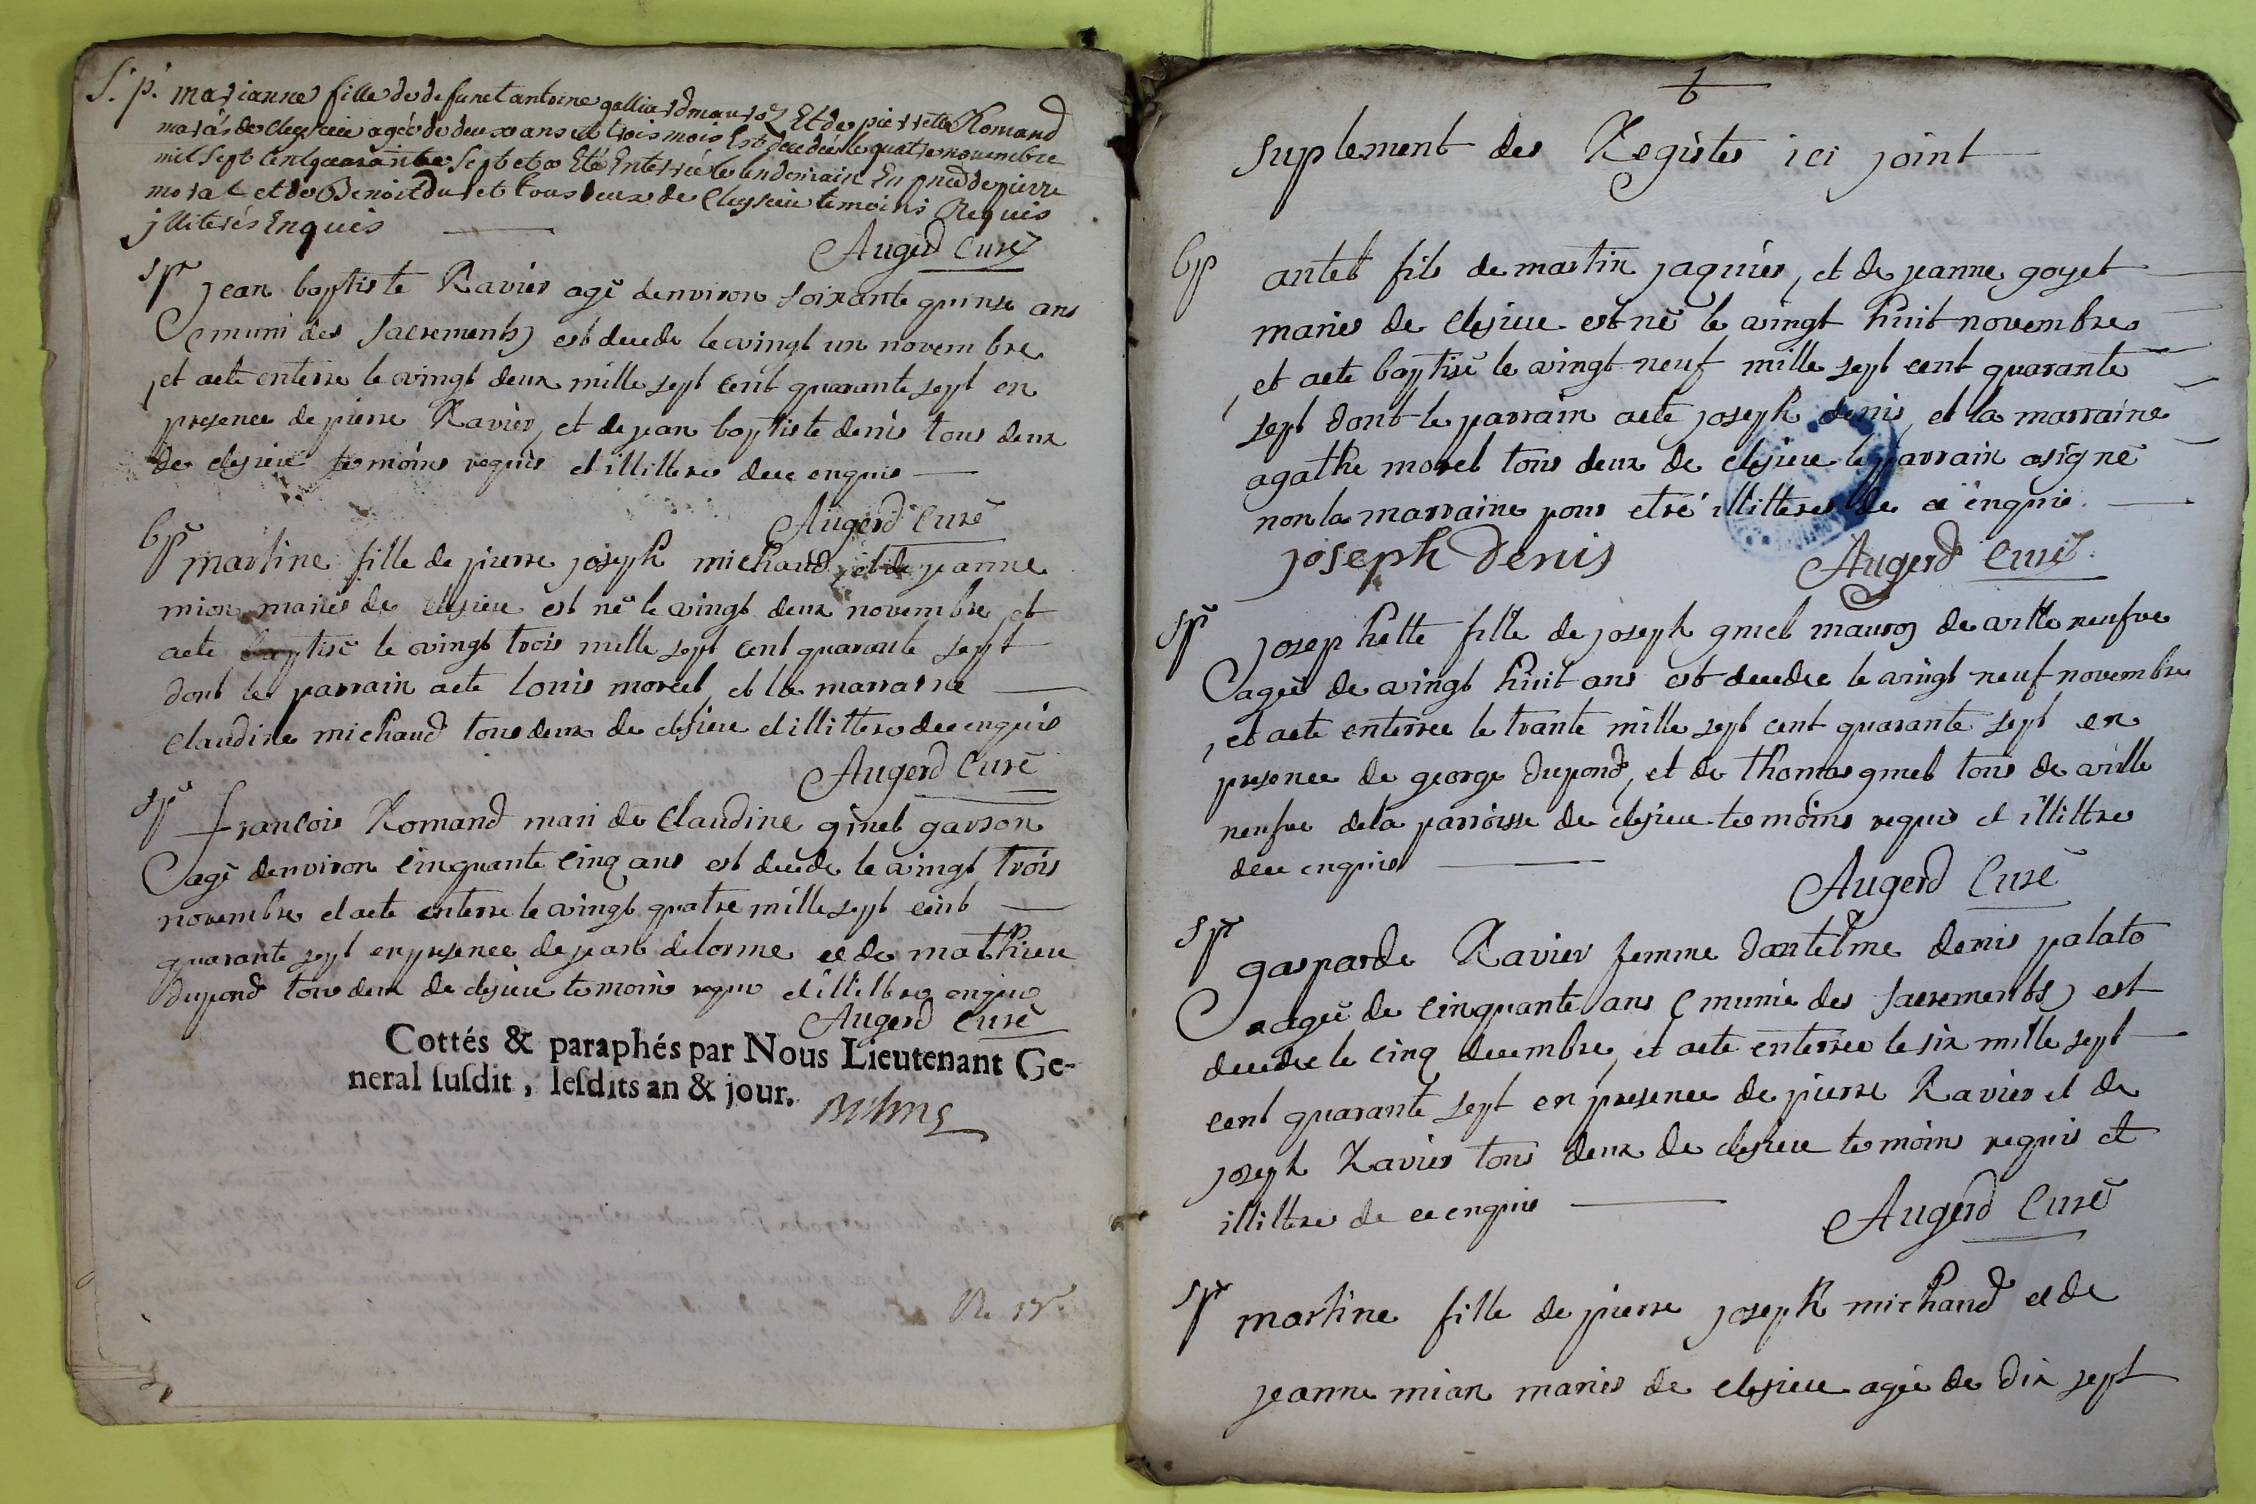 S. p. marianne fille de defunct antoine galliard mauroz Et de pierrette Romand
mariés de Cleysieu agée de deux ans et trois mois Est decedée le quatre novembre
mil sept cent quarante sept et a Eté Enterrée le lendemain En pnce de pierre
morat et de Benoit duret tous deux de Cleysieu temoins Requis
jlliterés Enquis
Augerd Curé
Sp jean baptiste Ravier agé denviron soixante quinse ans
(muni des sacrements) est decede le vingt un novembre
et aeté enterre le vingt deux mille sept cent quarante sept en
presence de pierre Ravier, et de jean baptiste denis tous deux
de clesieu temoins requis et illittere de ce enquis
Augerd Curé
bp martine fille de pierre joseph michaud, et de jeanne
mion mariés de clesieu est né le vingt deux novembre et
aeté baptisé le vingt trois mille sept cent quarante sept
dont le parrain aeté louis morel, et la marraine
Claudine michaud tous deux de clesieu et illittere de ce enquis
Augerd Curé
Sp françois Romand mari de Claudine ginet garson
agé denviron cinquante cinq ans est decede le vingt trois
novembre et aeté enterre le vingt quatre mille sept cent
quarante sept en presence de jean delorme et de mathieu
dupond tous deux de clesieu temoins requis et illittere enquis
Augerd Curé
Cottés & paraphés par Nous Lieutenant Ge-
neral susdit, lesdits an & jour.
6
Suplement des Registes ici joint
bp antel fils de martin jaquier, et de jeanne goyet
mariés de clesieu est né le vingt huit novembre
et aeté baptisé le vingt neuf mille sept cent quarante
sept dont le parrain aeté joseph denis, et la marraine
agathe morel tous deux de clesieu le parrain a signé
non la marraine pour etre illittere de ce enquis.
joseph denis Augerd Curé
Sp josephette fille de joseph ginet mauroz de ville neufve
agée de vingt huit ans est decedee le vingt neuf novembre
et aeté enterree le trante mille sept cent quarante sept en
presence de george dupond, et de thomas ginet tous de ville
neufve de la parroisse de clesieu temoins requis et illittere
de ce enquis
Augerd Curé
Sp gasparde Ravier femme dantelme denis palato
agée de cinquante ans (munie des sacrements) est
decedee le cinq decembre, et aeté enterree le six mille sept
cent quarante sept en presence de pierre Ravier et de
joseph Ravier tous deux de clesieu temoins requis et
illittere de ce enquis
Augerd Curé
Sp martine fille de pierre joseph michaud et de
jeanne mian mariés de clesieu agée de dix sept